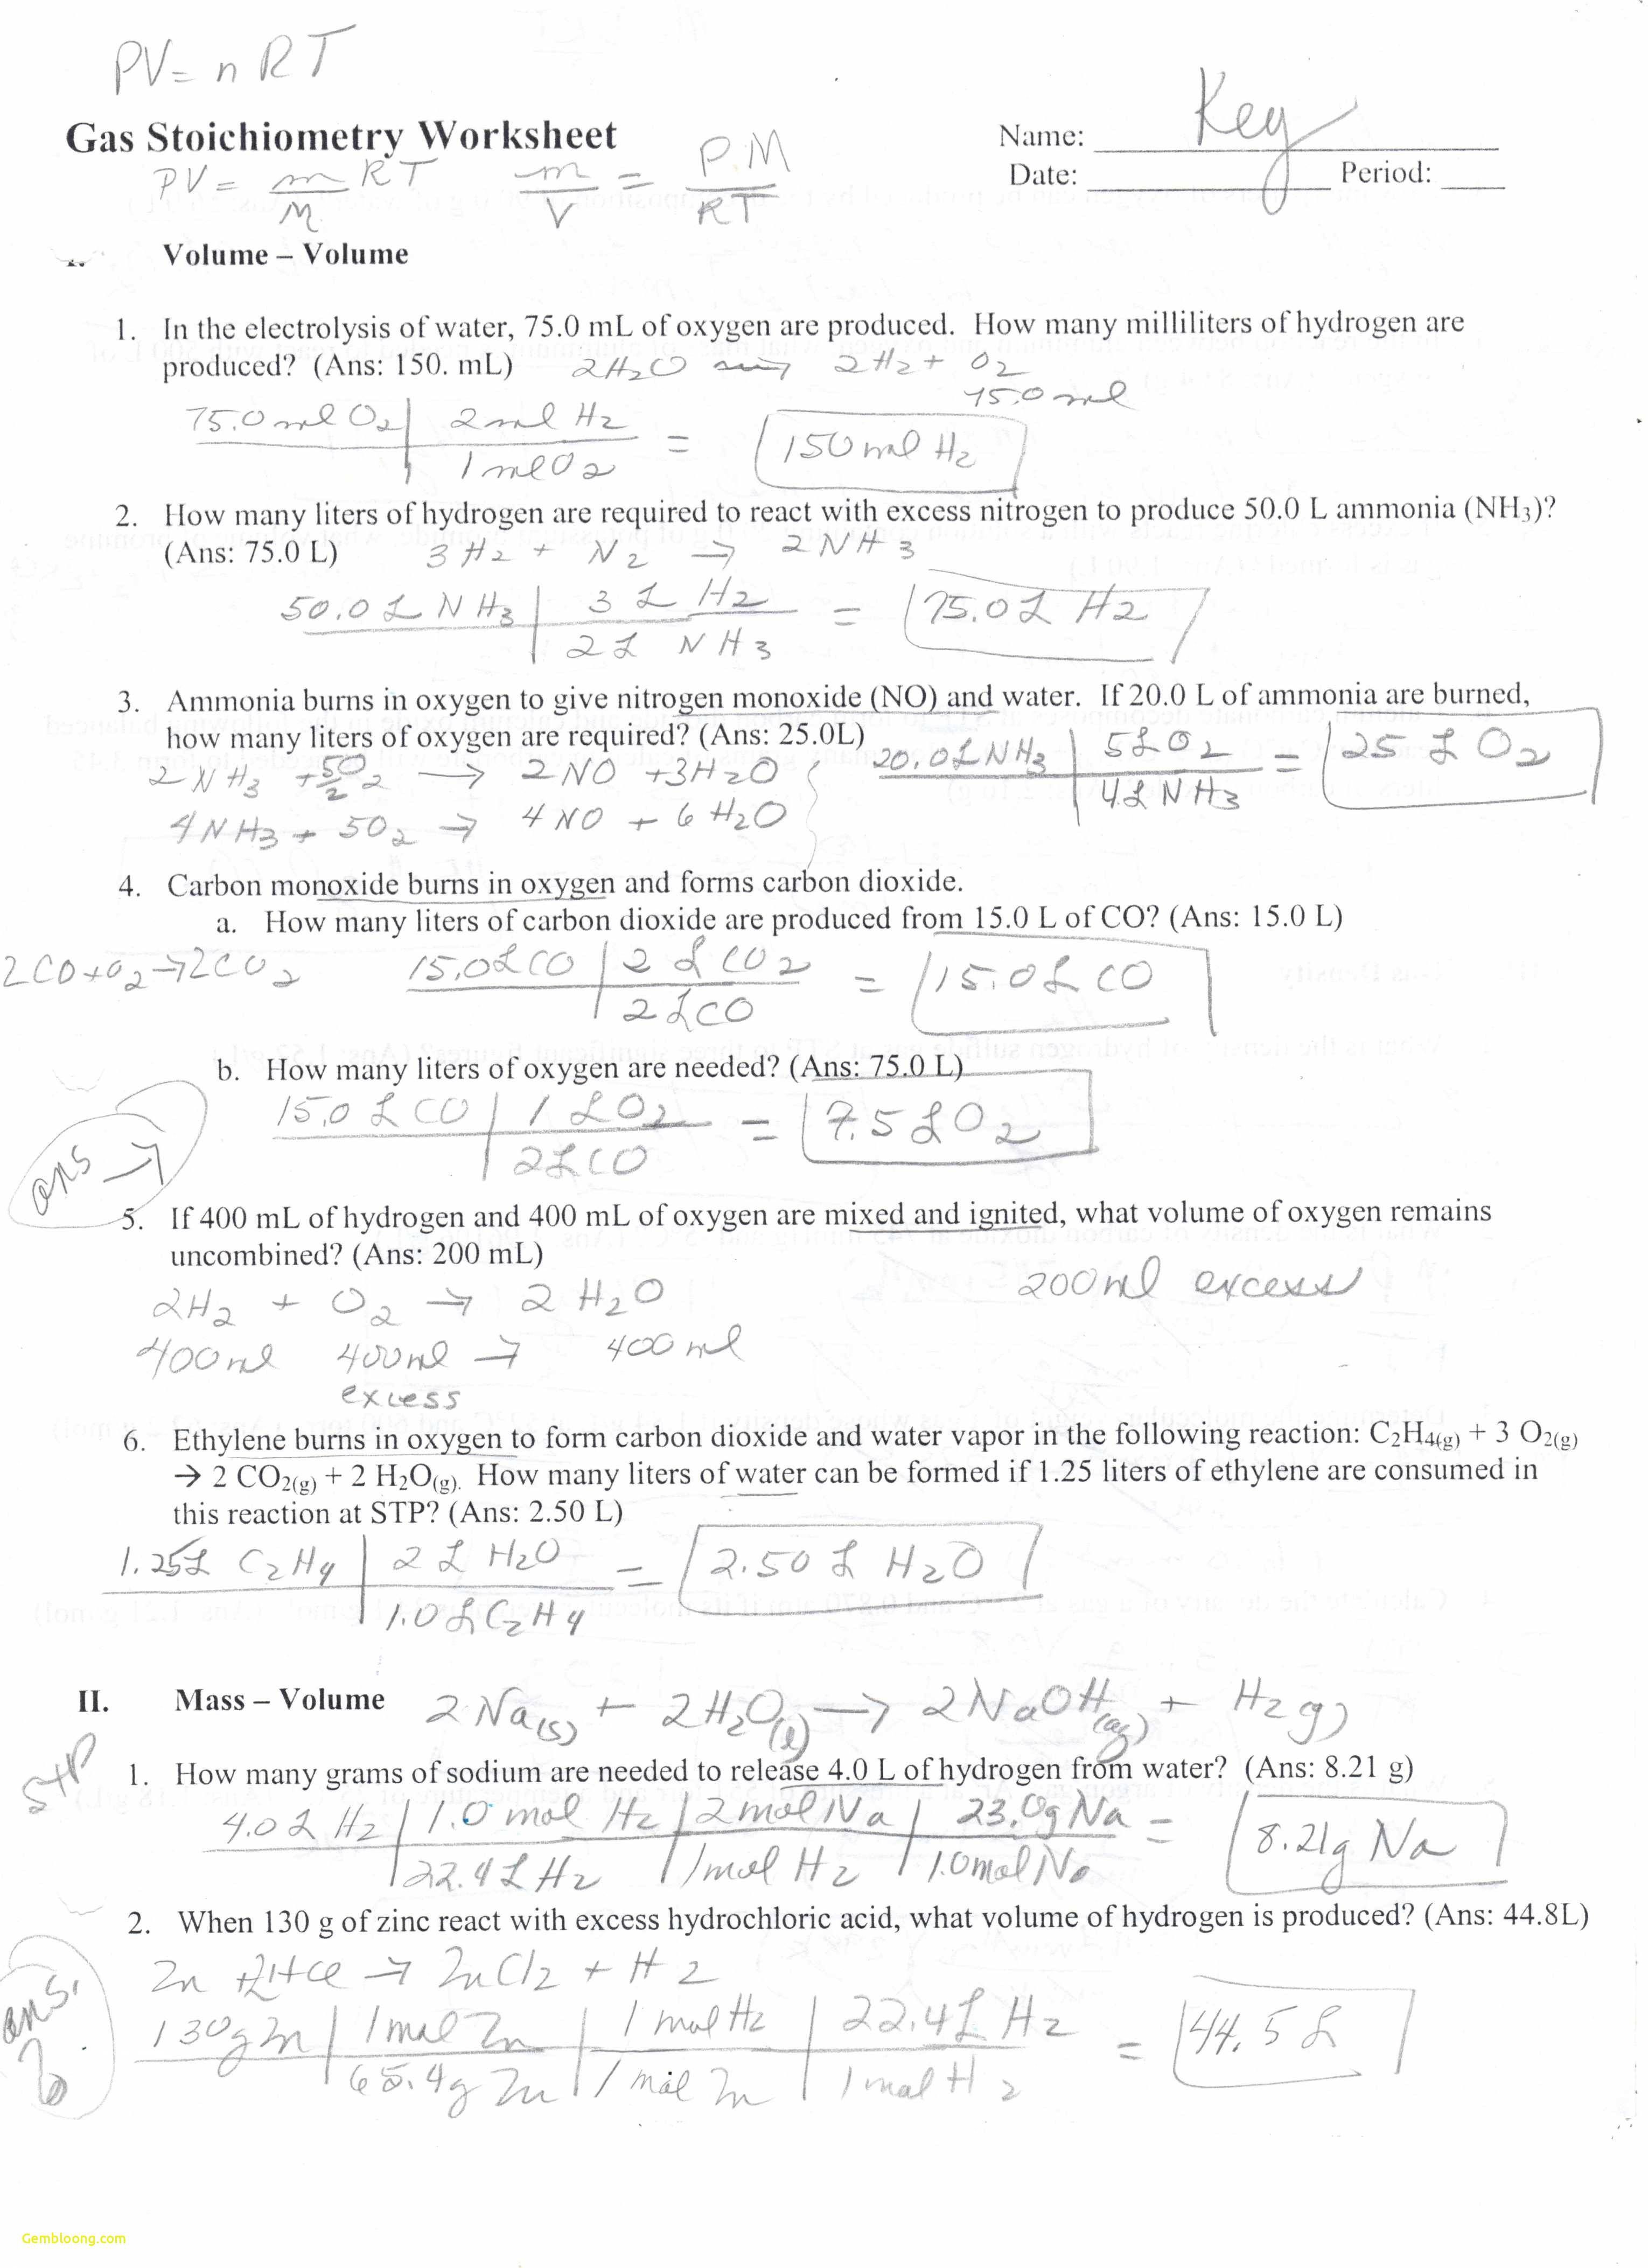 PV = nRT
Gas Stoichiometry Worksheet
Name: Key
Date: Period:
PV = m/M RT m/V = P.M/RT
Volume – Volume
1. In the electrolysis of water, 75.0 mL of oxygen are produced. How many milliliters of hydrogen are
produced? (Ans: 150. mL) 2H2O → 2H2 + O2
75.0 ml
75.0 ml O2 | 2 ml H2 = 150 ml H2
1 ml O2
2. How many liters of hydrogen are required to react with excess nitrogen to produce 50.0 L ammonia (NH3)?
(Ans: 75.0 L) 3H2 + N2 → 2NH3
50.0 L NH3 | 3 L H2 = 75.0 L H2
2 L NH3
3. Ammonia burns in oxygen to give nitrogen monoxide (NO) and water. If 20.0 L of ammonia are burned,
how many liters of oxygen are required? (Ans: 25.0L) 20.0 L NH3 | 5 L O2 = 25 L O2
2NH3 + 5/2 O2 → 2NO + 3H2O 4 L NH3
4NH3 + 5O2 → 4NO + 6H2O
4. Carbon monoxide burns in oxygen and forms carbon dioxide.
a. How many liters of carbon dioxide are produced from 15.0 L of CO? (Ans: 15.0 L)
2CO + O2 → 2CO2 15.0 L CO | 2 L CO2 = 15.0 L CO
2 L CO
b. How many liters of oxygen are needed? (Ans: 75.0 L)
15.0 L CO | 1 L O2 = 7.5 L O2
2 L CO
ans →
5. If 400 mL of hydrogen and 400 mL of oxygen are mixed and ignited, what volume of oxygen remains
uncombined? (Ans: 200 mL)
200 ml excess
2H2 + O2 → 2H2O
400 ml 400 ml → 400 ml
excess
6. Ethylene burns in oxygen to form carbon dioxide and water vapor in the following reaction: C2H4(g) + 3 O2(g)
→ 2 CO2(g) + 2 H2O(g). How many liters of water can be formed if 1.25 liters of ethylene are consumed in
this reaction at STP? (Ans: 2.50 L)
1.25 L C2H4 | 2 L H2O = 2.50 L H2O
1.0 L C2H4
II. Mass – Volume 2Na(s) + 2H2O(l) → 2NaOH(aq) + H2(g)
STP
1. How many grams of sodium are needed to release 4.0 L of hydrogen from water? (Ans: 8.21 g)
4.0 L H2 | 1.0 mol H2 | 2 mol Na | 23.0g Na = 8.21g Na
22.4 L H2 | 1 mol H2 | 1.0 mol Na
2. When 130 g of zinc react with excess hydrochloric acid, what volume of hydrogen is produced? (Ans: 44.8L)
Zn + 2HCl → ZnCl2 + H2
ans.
130g Zn | 1 mol Zn | 1 mol H2 | 22.4 L H2 = 44.5 L
65.4g Zn | 1 mol Zn | 1 mol H2
Gembloong.com